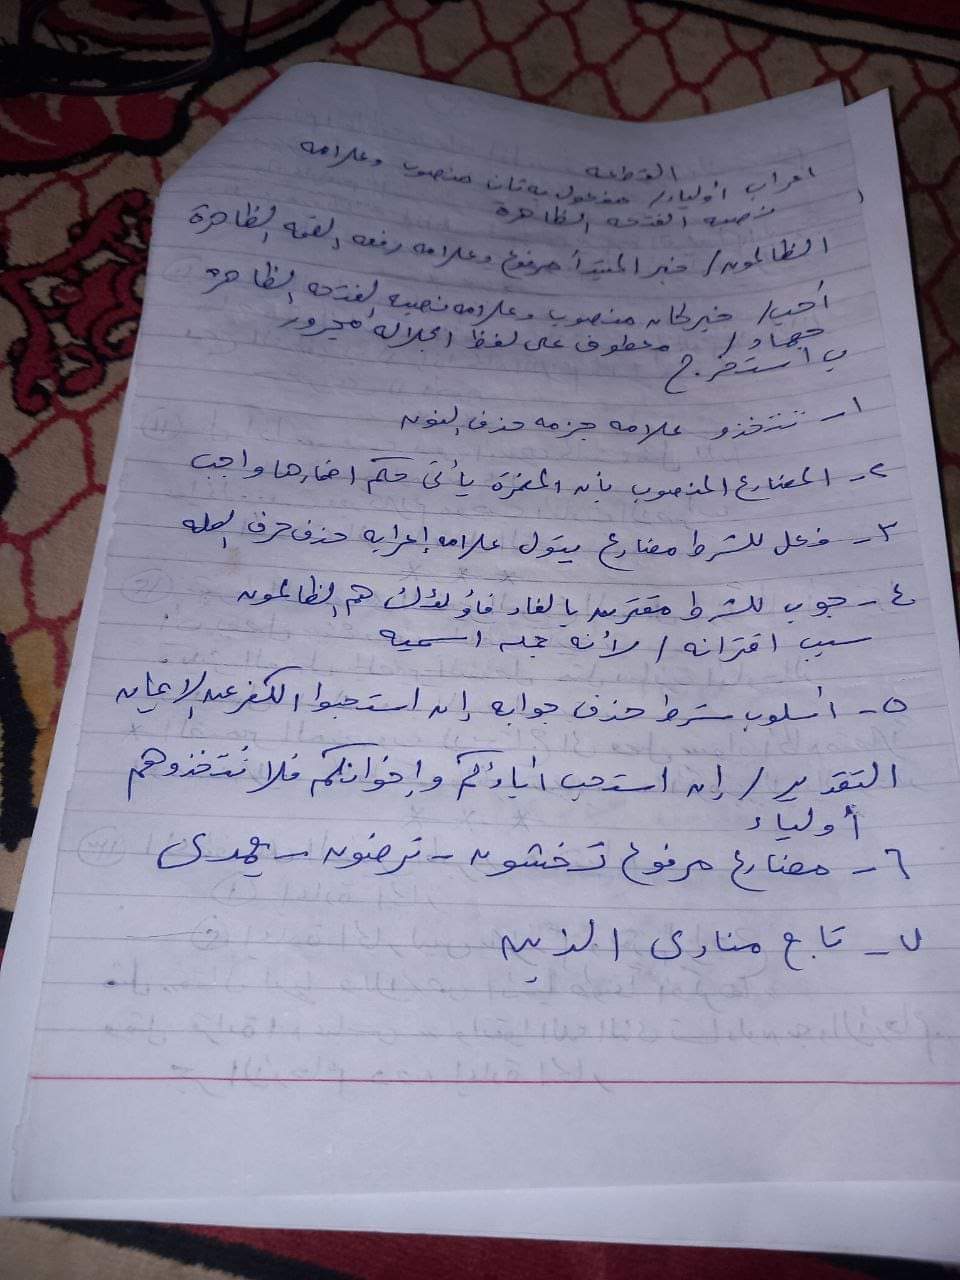 القطعه
اعراب أولياء/ مفعول به ثان منصوب وعلامه
نصبه الفتحه الظاهرة
الظالمون/ خبر المبتدأ مرفوع وعلامه رفعه الضمه الظاهرة
أحب/ خبر كان منصوب وعلامه نصبه الفتحه الظاهرة
جهاد/ معطوف على لفظ الجلاله مجرور
ب استخرج
١- تتخذو علامه جزمه حذف النون
٢- المضارع المنصوب بأن المضمرة يأتى حكم اضمارها واجب
٣- فعل للشرط مضارع يتول علامه إعرابه حذف حرف العله
٤- جوب للشرط مقترن بالفاء فأولئك هم الظالمون
سبب اقترانه / لأنه جمله اسميه
٥- أسلوب شرط حذف جوابه إن استحبوا الكفر على الإيمان
التقدير / إن استحب أباءكم وإخوانكم فلا تتخذوهم
أولياء
٦- مضارع مرفوع تخشون - ترضون - يهدى
٧- تابع منادى الذين